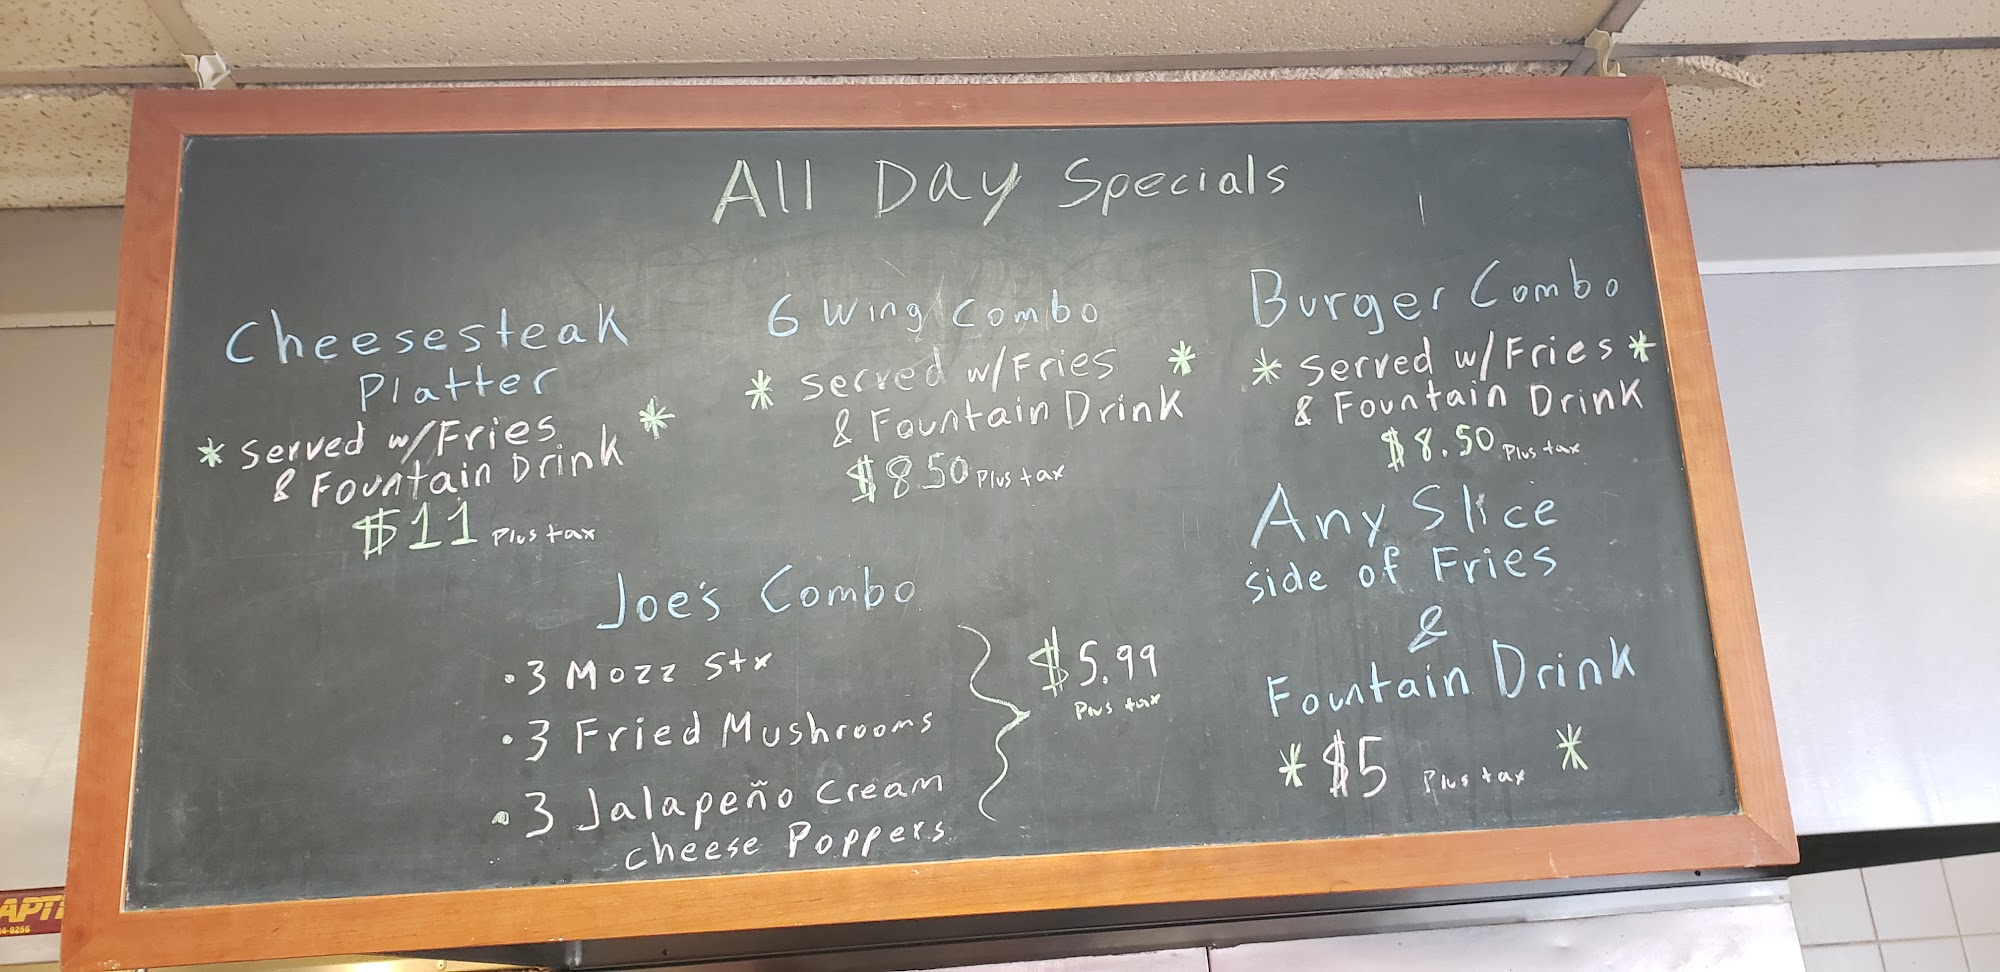 All Day Specials
Cheesesteak
Platter
* served w/Fries *
& Fountain Drink
$11 Plus tax
6 Wing Combo
* served w/Fries *
& Fountain Drink
$8.50 Plus tax
Burger Combo
* served w/Fries *
& Fountain Drink
$8.50 Plus tax
Joe's Combo
• 3 Mozz Stx
• 3 Fried Mushrooms
• 3 Jalapeño Cream
cheese Poppers
$5.99
Plus tax
Any Slice
side of Fries
&
Fountain Drink
* $5 Plus tax *